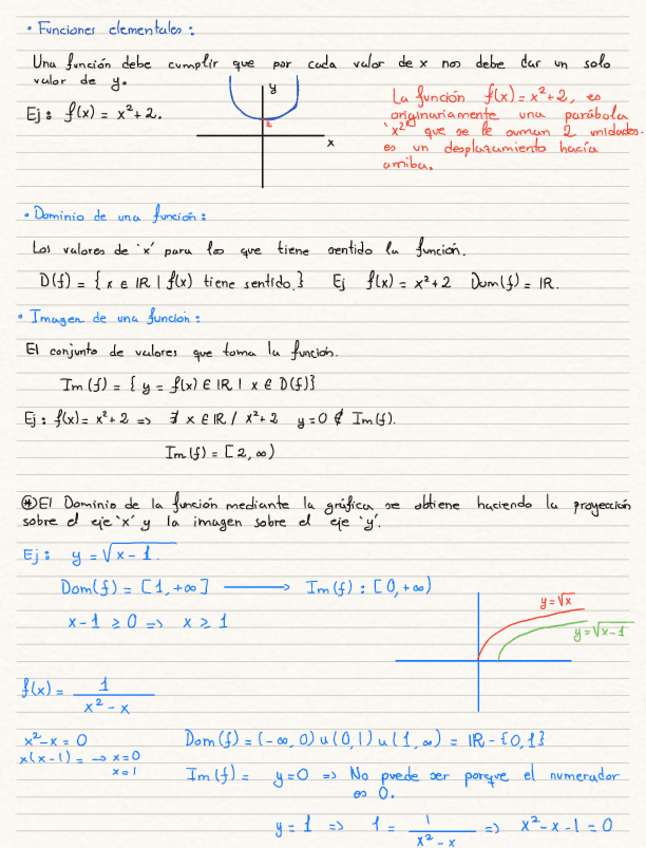 • Funciones elementales:
Una función debe cumplir que por cada valor de x nos debe dar un solo
valor de y.
Ej: f(x) = x²+2.
y
2
x
La función f(x) = x²+2, es
originariamente una parábola
'x²' que se le suman 2 unidades.
es un desplazamiento hacía
arriba.
• Dominio de una función:
Los valores de 'x' para los que tiene sentido la función.
D(f) = { x ∈ IR | f(x) tiene sentido.} Ej f(x) = x²+2 Dom(f) = IR.
• Imagen de una función:
El conjunto de valores que toma la función.
Im(f) = { y = f(x) ∈ IR | x ∈ D(f)}
Ej: f(x) = x²+2 => ∄ x ∈ IR / x²+2 y=0 ∉ Im(f).
Im(f) = [2, ∞)
⊛ El Dominio de la función mediante la gráfica se obtiene haciendo la proyección
sobre el eje 'x' y la imagen sobre el eje 'y'.
Ej: y = √x-1.
Dom(f) = [1,+∞] → Im(f): [0,+∞)
x-1 ≥ 0 => x ≥ 1
y=√x
y=√x-1
f(x) = 1 / x² - x
x²-x = 0
x(x-1) = → x=0
x=1
Dom(f) = (-∞, 0) u (0,1) u (1, ∞) = IR - {0,1}
Im(f) = y=0 => No puede ser porque el numerador
es 0.
y=1 => 1 = 1 / x²-x => x²-x-1=0